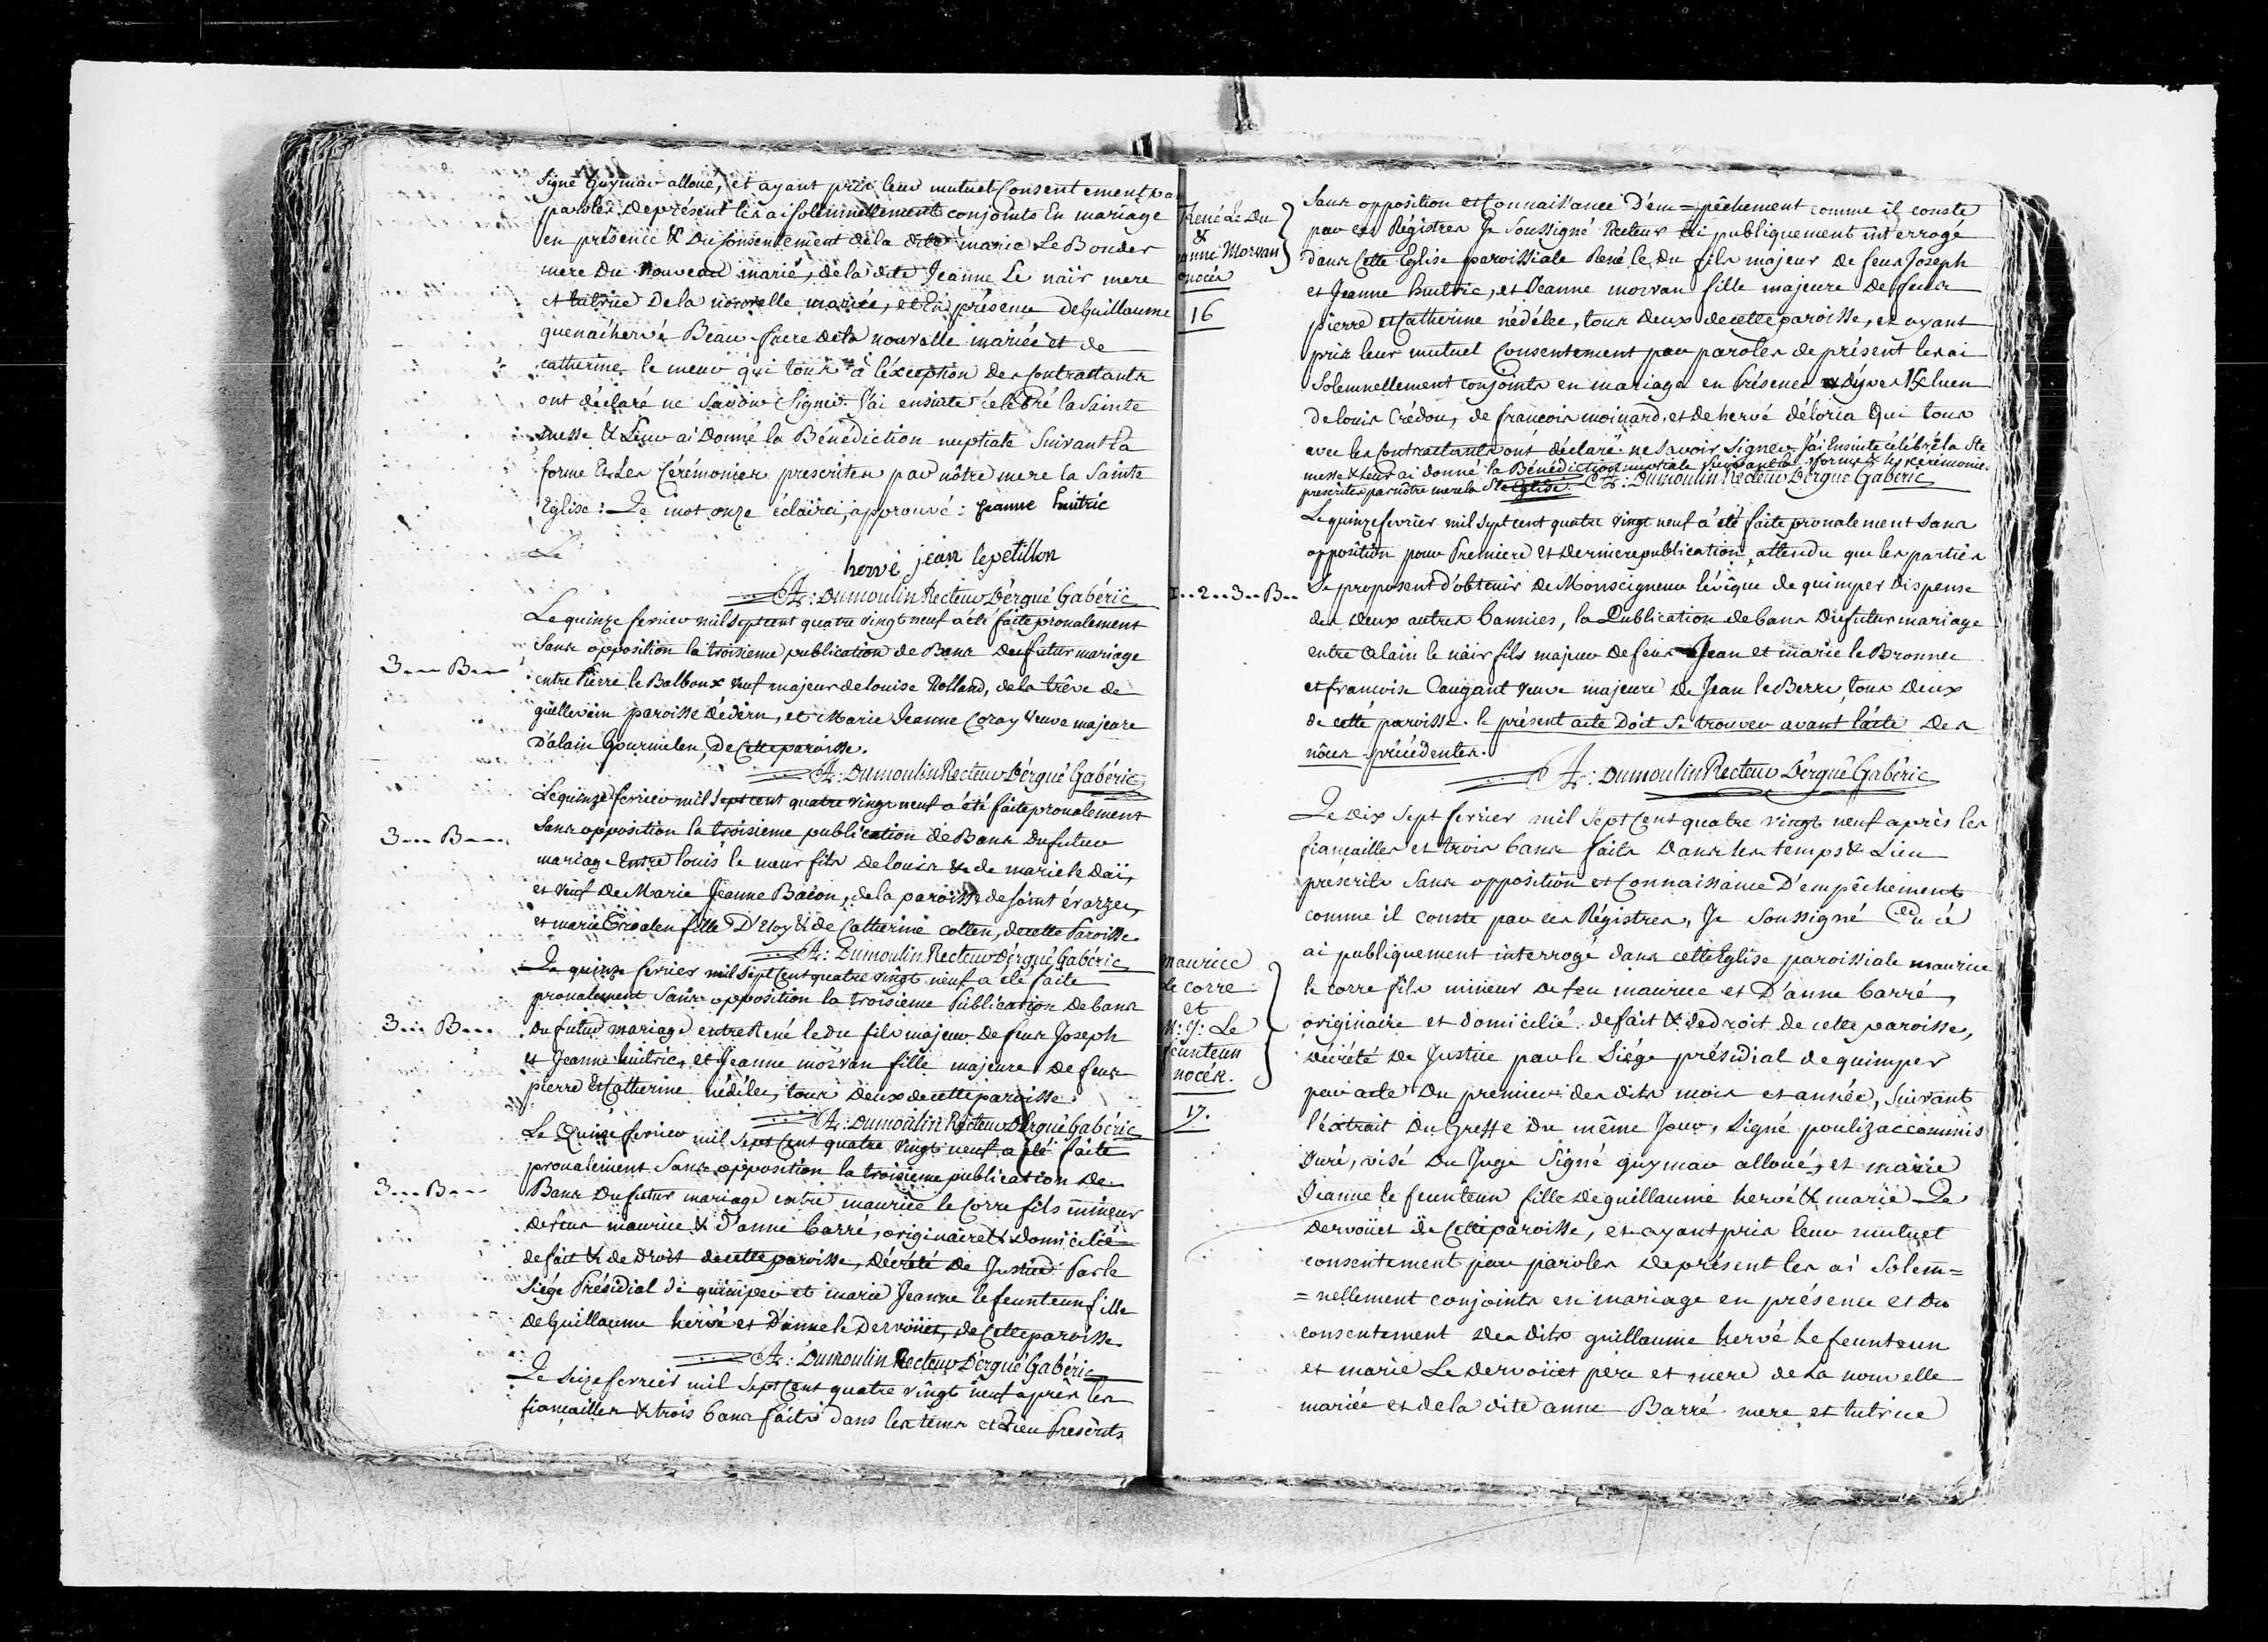 Signé Guÿmar alloué, et ayant pris leur mutuel Consentement pa
paroles de présent les ai solemnellement conjoints En mariage
en présence & Du Consentement de la dite marie Le Bonder
mere Du Nouveau marié, de la dite Jeanne Le naïr mere
et tutrice De la nouvelle mariée, et En présence de Guillaume
quenaihervé Beau-frere de la nouvelle mariée et de
catherine le meur qui tous à l'éxception des Contractants
ont déclaré ne Savoir Signer. J'ai ensuite célébré la Sainte
messe & Leur ai Donné la Bénédiction nuptiale Suivant La
forme Et Les Cérémonies prescrites par nôtre mere la Sainte
Eglise: Le mot onze éclairci, approuvé: jeanne huitric
Le
hervé jean lepetillon
A: Dumoulin Recteur D'Ergué Gabéric
Le quinze fevrier mil sept cent quatre vingt neuf a été faite pronalement
Sans opposition la troisieme publication de Bans du futur mariage
3---B--- entre Pierre le Balboux veuf majeur de louise Rolland, de la trêve de
quellevein paroisse d'édern, et Marie Jeanne Coray Veuve majeure
D'alain Gourmelen, De Cette paroisse.
A: Dumoulin Recteur D'Ergué Gabéric
Le quinze fevrier mil sept cent quatre vingt neuf a été faite pronalement
3---B--- Sans opposition la troisieme publication de Bans Du futur
mariage Entre louis le meur fils de louis & de marie le Daï,
et veuf de Marie Jeanne Bacon, de la paroisse de saint évarzec,
et marie fille D'eloy & de Catherine cotten, de cette Paroisse.
A: Dumoulin Recteur D'Ergué Gabéric
Le quinze fevrier mil sept Cent quatre vingt neuf a été faite
pronalement Sans opposition la troisieme Publication de bans
3---B--- Du futur mariage entre René le du fils majeur de feus Joseph
et Jeanne huitric, et Jeanne morvan fille majeure de feus
pierre Et Catherine nédélec, tous Deux de cette paroisse.
A: Dumoulin Recteur D'Ergué Gabéric
Le Quinze fevrier mil sept Cent quatre vingt neuf a été faite
pronalement Sans opposition la troisieme publication De
3---B--- Bans Du futur mariage entre maurice le Corre fils mineur
de feus maurice & d'anne barré, originaire & domicilié
de fait & de Droit de cette paroisse, Décrété De Justice Par le
Siége Présidial de quimper et marie Jeanne le feunteun fille
de Guillaume hervé et D'anne le Dervoüet, de Cette paroisse.
A: Dumoulin Recteur D'Ergué Gabéric
Le Seize fevrier mil Sept Cent quatre vingt neuf après les
fiançailles & trois bans faits dans les tems et Lieu Prescrits
René Le Du
&
anne Morvan
nocés
16
Sans opposition et Connaissance D'em=pêchement comme il conste
par ces Régistres Je Soussigné Recteur ai publiquement interrogé
dans Cette Eglise paroissiale René le Du fils majeur de feus Joseph
et Jeanne huitric, et Jeanne morvan fille majeure de feus
pierre et Catherine nédélec, tous Deux de cette paroisse, et ayant
pris leur mutuel Consentement par paroles de présent les ai
Solemnellement conjoints en mariage en Présence
de louis Crédou, de francois moinard, et de hervé déloria Qui tous
avec les Contractants ont déclaré ne Savoir Signer J'ai Ensuite célébré la Ste
messe & leur ai donné la Bénédiction nuptiale Suivant la forme & les cérémonies
prescrites par nôtre mere la Ste Eglise. A: Dumoulin Recteur D'Ergué Gabéric
Le quinze fevrier mil sept cent quatre vingt neuf a été faite pronalement sans
opposition pour Premiere et derniere publication, attendu que les parties
1--2--3--B-- Se proposent d'obtenir de Monseigneur l'évêque de quimper Dispense
des deux autres bannies, la Publication de bans Du futur mariage
entre alain le naïr fils majeur de feus Jean et marie le Bronnec
et francoise Caugant veuve majeure de Jean le Berre, tous Deux
de cette paroisse. le présent acte Doit Se trouver avant l'acte Des
nôces précédentes.
A: Dumoulin Recteur D'Ergué Gabéric
Maurice
Le corre
et
M: J: Le
feunteun
nocés.
17.
Le Dix Sept fevrier mil Sept Cent quatre vingt neuf après les
fiançailles et trois bans faits Dans les temps & Lieu
prescrits Sans opposition et Connaissance D'empêchement
comme il conste par ces Régistres, Je Soussigné Curé
ai publiquement interrogé dans cette Eglise paroissiale maurice
le corre fils mineur de feu maurice et D'anne barré,
originaire et domicilié de fait & de Droit de cette paroisse,
décrété de Justice par le Siége présidial de quimper
par acte Du premier des dits mois et année, Suivant
l'éxtrait Du Greffe Du même Jour, Signé poulizac commis
Juré, visé Du Juge Signé guymar alloué, et marie
Jeanne le feunteun fille de guillaume hervé & marie Le
Dervoüet De Cette paroisse, et ayant pris leur mutuel
consentement par paroles de présent les ai Solem=
=nellement conjoints en mariage en présence et Du
consentement Des dits guillaume hervé le feunteun
et marie Le Dervoüet pere et mere de La nouvelle
mariée et de la dite anne Barré mere et tutrice